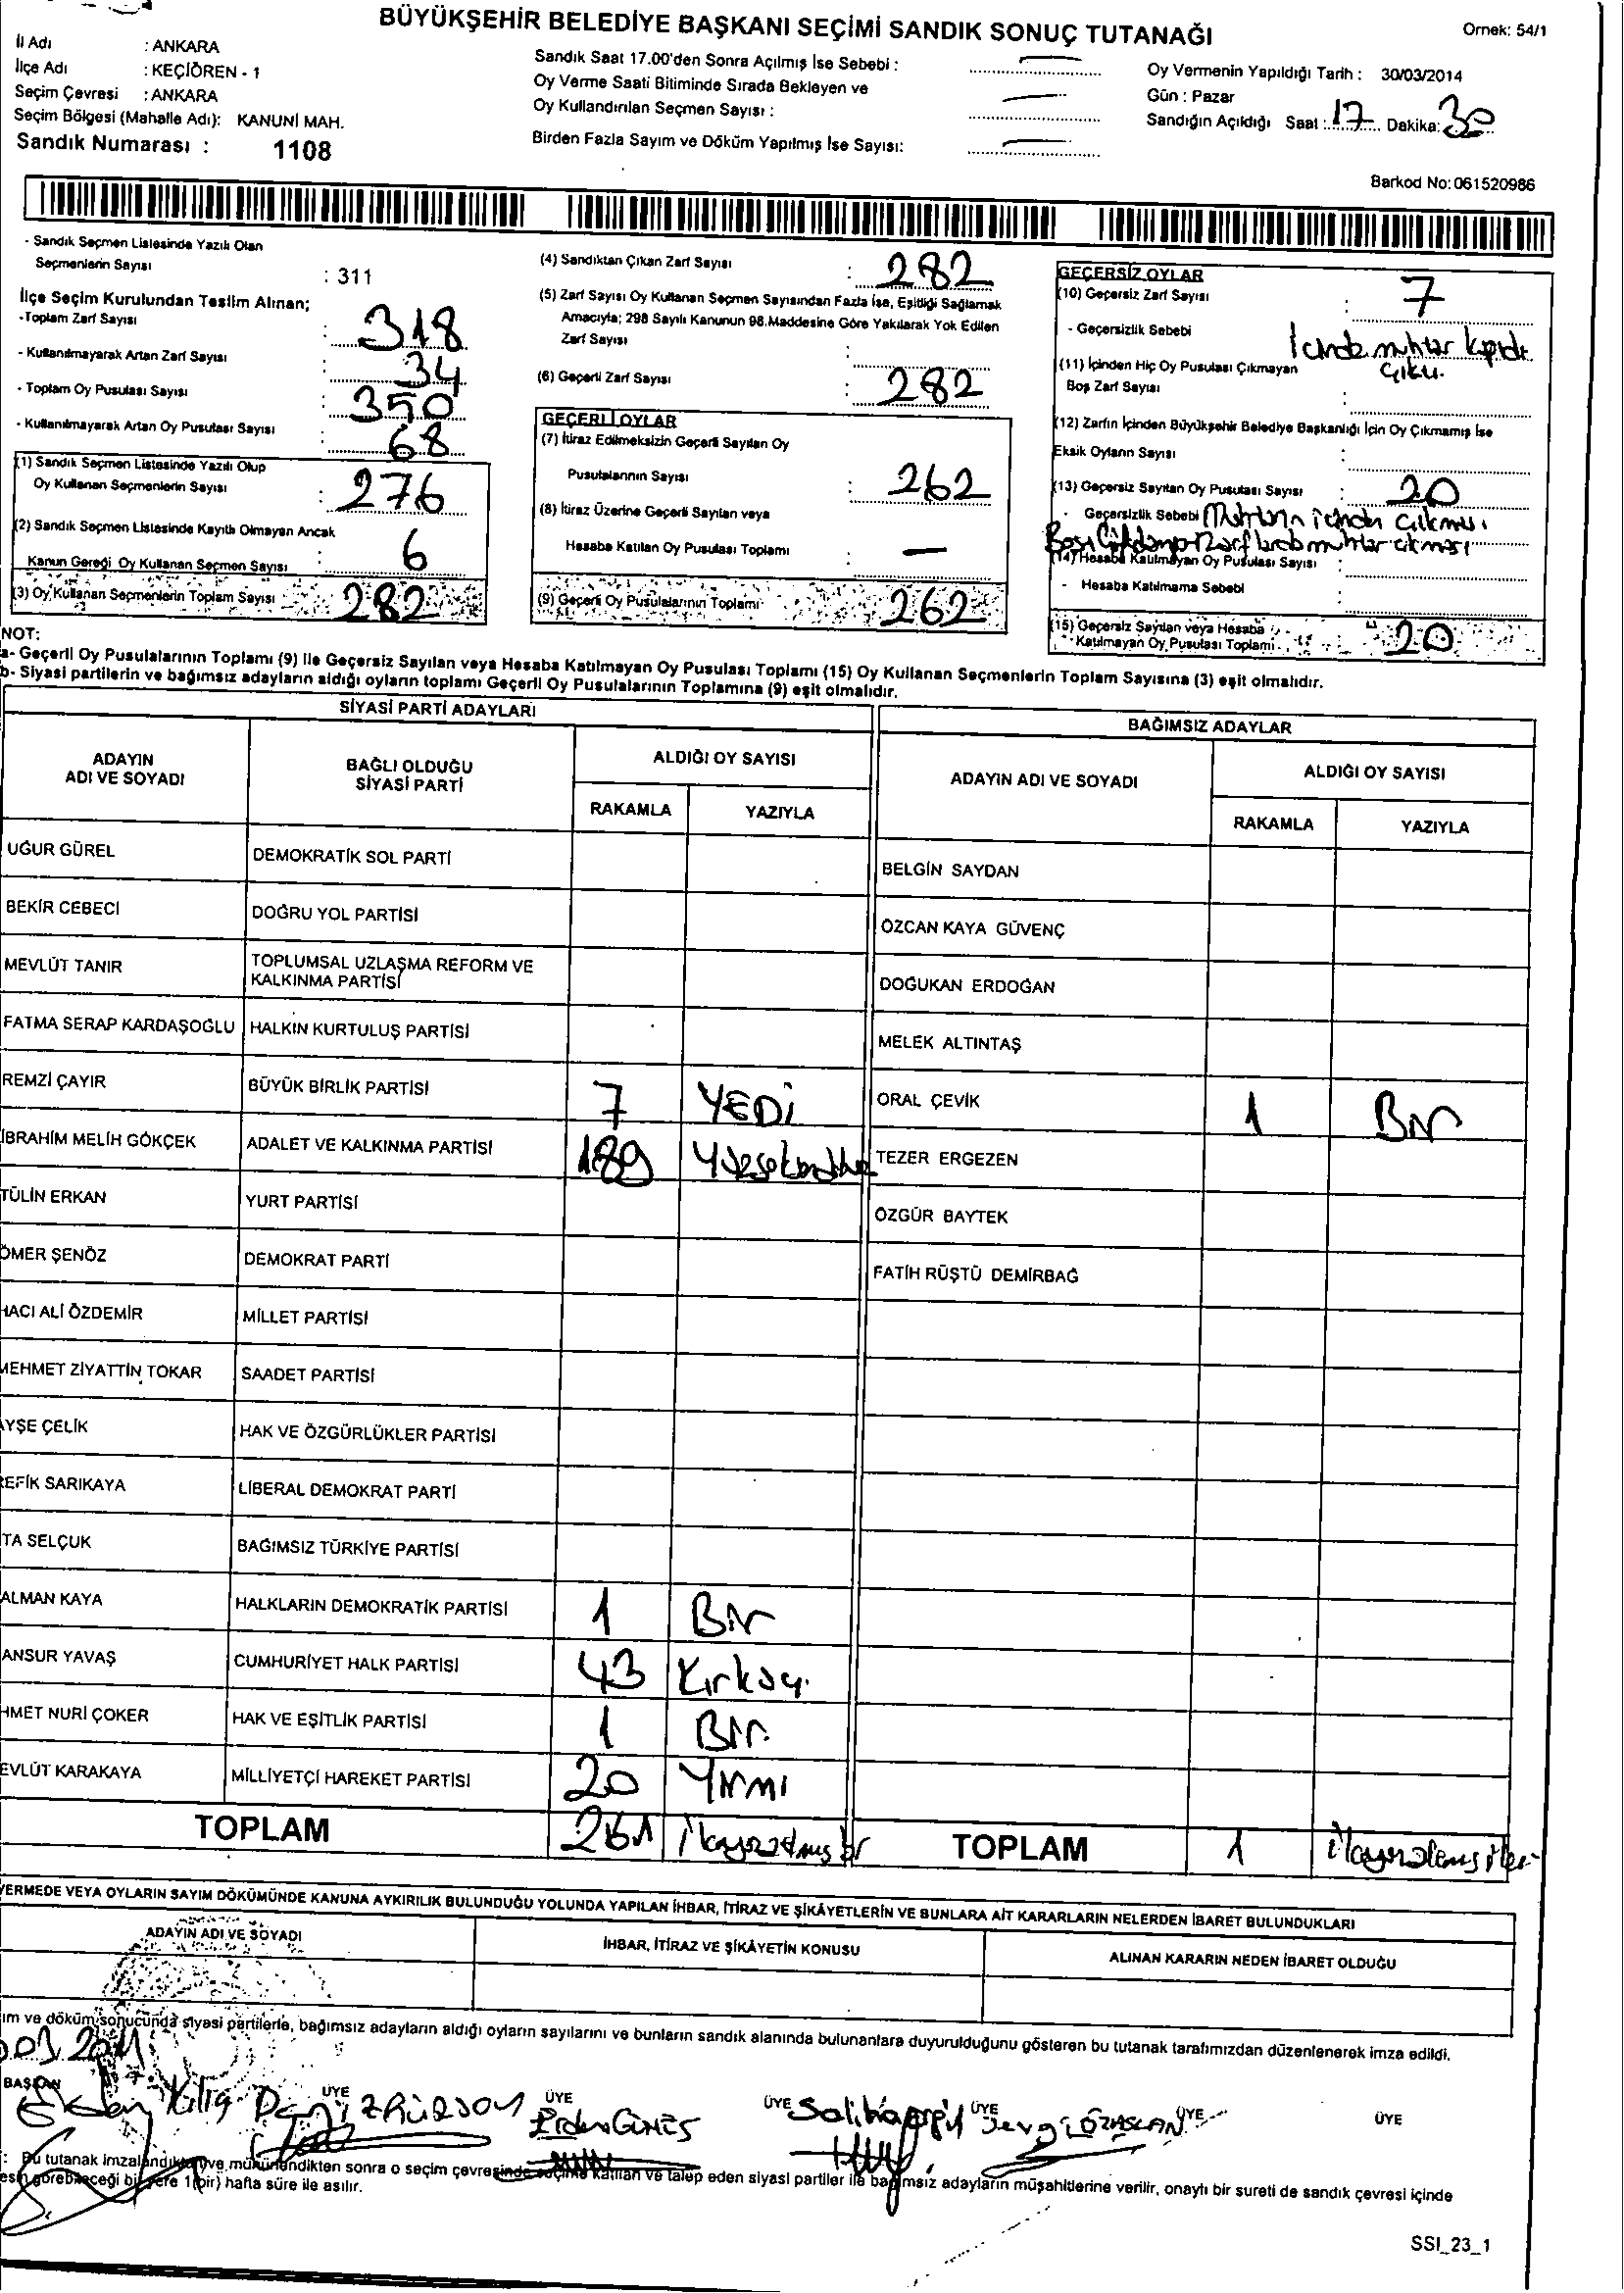 BÜYÜKŞEHİR BELEDİYE BAŞKANI SEÇİMİ SANDIK SONUÇ TUTANAĞI
Örnek: 54/1
İl Adı : ANKARA
İlçe Adı : KEÇİÖREN - 1
Seçim Çevresi : ANKARA
Seçim Bölgesi (Mahalle Adı): KANUNİ MAH.
Sandık Numarası : 1108
Sandık Saat 17.00'den Sonra Açılmış İse Sebebi :
Oy Verme Saati Bitiminde Sırada Bekleyen ve
Oy Kullandırılan Seçmen Sayısı :
Birden Fazla Sayım ve Döküm Yapılmış İse Sayısı:
Oy Vermenin Yapıldığı Tarih : 30/03/2014
Gün : Pazar
Sandığın Açıldığı Saat : 17 Dakika: 30
Barkod No: 061520986
- Sandık Seçmen Listesinde Yazılı Olan
Seçmenlerin Sayısı : 311
İlçe Seçim Kurulundan Teslim Alınan;
-Toplam Zarf Sayısı : 318
- Kullanılmayarak Artan Zarf Sayısı : 34
- Toplam Oy Pusulası Sayısı : 350
- Kullanılmayarak Artan Oy Pusulası Sayısı : 68
(1) Sandık Seçmen Listesinde Yazılı Olup
Oy Kullanan Seçmenlerin Sayısı : 276
(2) Sandık Seçmen Listesinde Kayıtlı Olmayan Ancak
Kanun Gereği Oy Kullanan Seçmen Sayısı : 6
(3) Oy Kullanan Seçmenlerin Toplam Sayısı : 282
(4) Sandıktan Çıkan Zarf Sayısı : 282
(5) Zarf Sayısı Oy Kullanan Seçmen Sayısından Fazla İse, Eşitliği Sağlamak
Amacıyla; 298 Sayılı Kanunun 98.Maddesine Göre Yakılarak Yok Edilen
Zarf Sayısı :
(6) Geçerli Zarf Sayısı : 282
GEÇERLİ OYLAR
(7) İtiraz Edilmeksizin Geçerli Sayılan Oy
Pusulalarının Sayısı : 262
(8) İtiraz Üzerine Geçerli Sayılan veya
Hesaba Katılan Oy Pusulası Toplamı : —
(9) Geçerli Oy Pusulalarının Toplamı : 262
GEÇERSİZ OYLAR
(10) Geçersiz Zarf Sayısı : 7
- Geçersizlik Sebebi
(11) İçinden Hiç Oy Pusulası Çıkmayan
Boş Zarf Sayısı :
(12) Zarfın İçinden Büyükşehir Belediye Başkanlığı İçin Oy Çıkmamış İse
Eksik Oyların Sayısı :
(13) Geçersiz Sayılan Oy Pusulası Sayısı : 20
- Geçersizlik Sebebi
(14) Hesaba Katılmayan Oy Pusulası Sayısı :
- Hesaba Katılmama Sebebi :
(15) Geçersiz Sayılan veya Hesaba
Katılmayan Oy Pusulası Toplamı : 20
NOT:
a- Geçerli Oy Pusulalarının Toplamı (9) ile Geçersiz Sayılan veya Hesaba Katılmayan Oy Pusulası Toplamı (15) Oy Kullanan Seçmenlerin Toplam Sayısına (3) eşit olmalıdır.
b- Siyasi partilerin ve bağımsız adayların aldığı oyların toplamı Geçerli Oy Pusulalarının Toplamına (9) eşit olmalıdır.
SİYASİ PARTİ ADAYLARI
ADAYIN ADI VE SOYADI
BAĞLI OLDUĞU SİYASİ PARTİ
ALDIĞI OY SAYISI
RAKAMLA YAZIYLA
UĞUR GÜREL DEMOKRATİK SOL PARTİ
BEKİR CEBECİ DOĞRU YOL PARTİSİ
MEVLÜT TANIR TOPLUMSAL UZLAŞMA REFORM VE
KALKINMA PARTİSİ
FATMA SERAP KARDAŞOĞLU HALKIN KURTULUŞ PARTİSİ
REMZİ ÇAYIR BÜYÜK BİRLİK PARTİSİ 7 YEDİ
İBRAHİM MELİH GÖKÇEK ADALET VE KALKINMA PARTİSİ 189
TÜLİN ERKAN YURT PARTİSİ
ÖMER ŞENÖZ DEMOKRAT PARTİ
HACI ALİ ÖZDEMİR MİLLET PARTİSİ
MEHMET ZİYATTİN TOKAR SAADET PARTİSİ
AYŞE ÇELİK HAK VE ÖZGÜRLÜKLER PARTİSİ
REFİK SARIKAYA LİBERAL DEMOKRAT PARTİ
TA SELÇUK BAĞIMSIZ TÜRKİYE PARTİSİ
ALMAN KAYA HALKLARIN DEMOKRATİK PARTİSİ 1 Bir
ANSUR YAVAŞ CUMHURİYET HALK PARTİSİ 43 Kırküç
HMET NURİ ÇOKER HAK VE EŞİTLİK PARTİSİ 1 Bir.
EVLÜT KARAKAYA MİLLİYETÇİ HAREKET PARTİSİ 20 Yirmi
TOPLAM 261
BAĞIMSIZ ADAYLAR
ADAYIN ADI VE SOYADI
ALDIĞI OY SAYISI
RAKAMLA YAZIYLA
BELGİN SAYDAN
ÖZCAN KAYA GÜVENÇ
DOĞUKAN ERDOĞAN
MELEK ALTINTAŞ
ORAL ÇEVİK 1 Bir
TEZER ERGEZEN
ÖZGÜR BAYTEK
FATİH RÜŞTÜ DEMİRBAĞ
TOPLAM 1
VERMEDE VEYA OYLARIN SAYIM DÖKÜMÜNDE KANUNA AYKIRILIK BULUNDUĞU YOLUNDA YAPILAN İHBAR, İTİRAZ VE ŞİKÂYETLERİN VE BUNLARA AİT KARARLARIN NELERDEN İBARET BULUNDUKLARI
ADAYIN ADI VE SOYADI
İHBAR, İTİRAZ VE ŞİKÂYETİN KONUSU
ALINAN KARARIN NEDEN İBARET OLDUĞU
ım ve döküm sonucunda siyasi partilerle, bağımsız adayların aldığı oyların sayılarını ve bunların sandık alanında bulunanlara duyurulduğunu gösteren bu tutanak tarafımızdan düzenlenerek imza edildi.
BAŞKAN ÜYE ÜYE ÜYE ÜYE ÜYE ÜYE
: Bu tutanak imzalandıktan ve mühürlendikten sonra o seçim çevresinde seçime katılan ve talep eden siyasi partiler ile bağımsız adayların müşahitlerine verilir, onaylı bir sureti de sandık çevresi içinde
görebileceği bir yere 1(bir) hafta süre ile asılır.
SSI_23_1